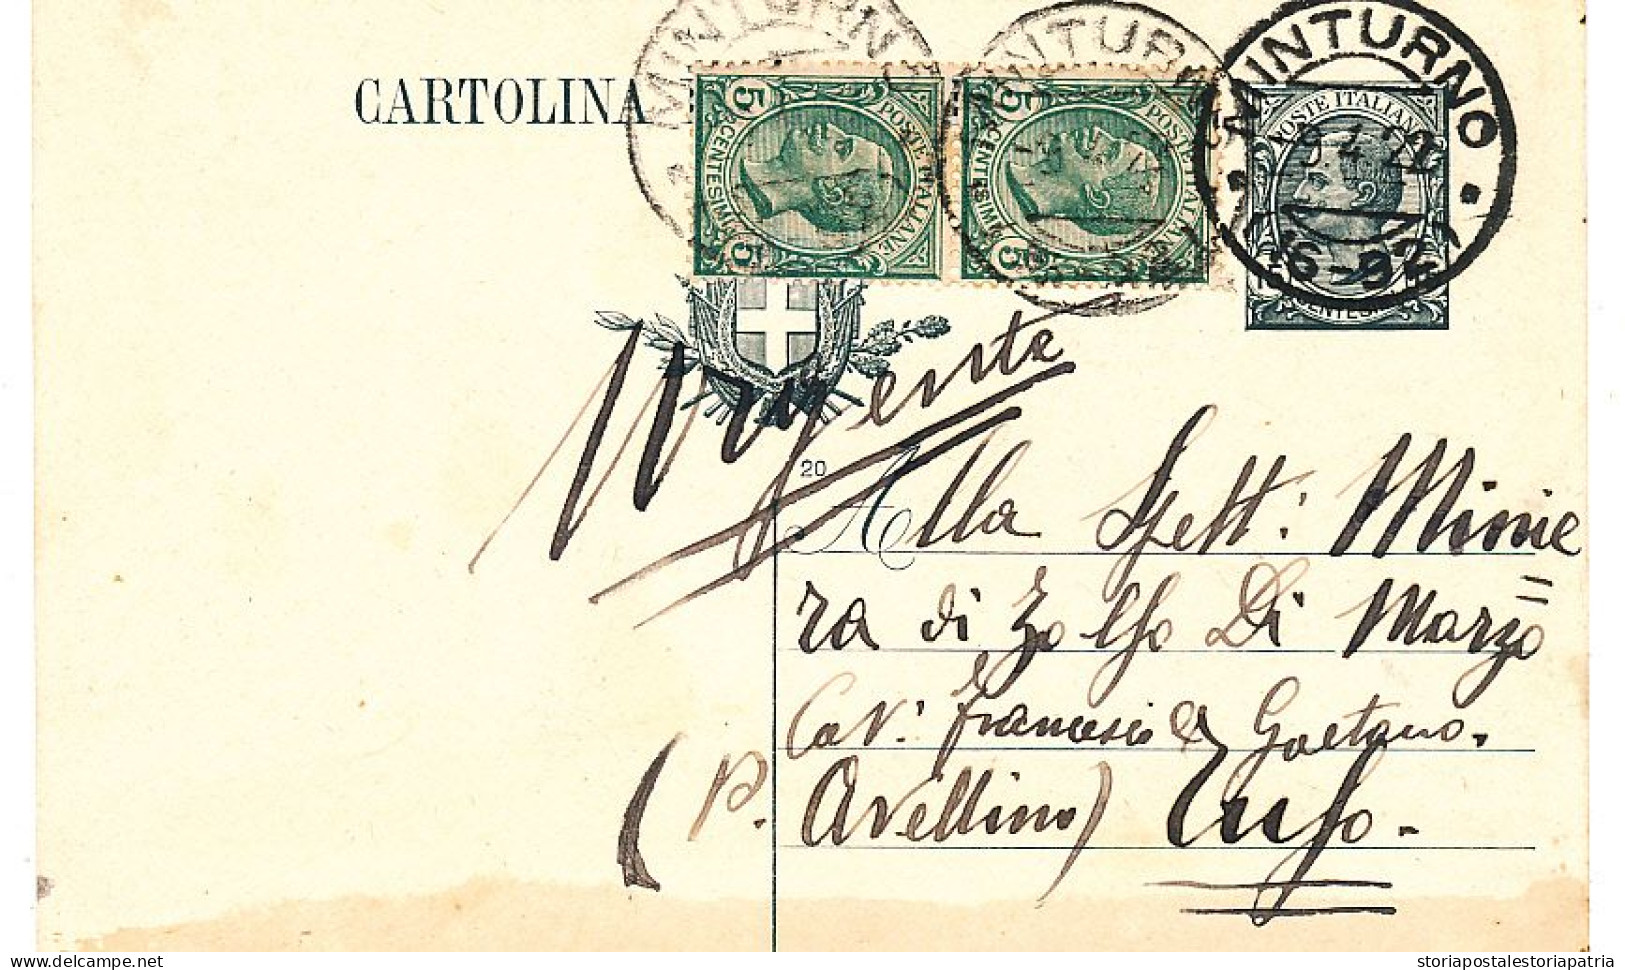 CARTOLINA
MINTURNO
MINTURNO
MINTURNO
5 POSTE ITALIANE
CENTESIMI 5
5 POSTE ITALIANE
CENTESIMI 5
POSTE ITALIANE
16-92
Urgente
20
Alla Spett: Minie
ra di Zolfo Di Marzo
Cav: Francesco & Gaetano.
(p. Avellino) Tufo.
storiapostalestoriapatria